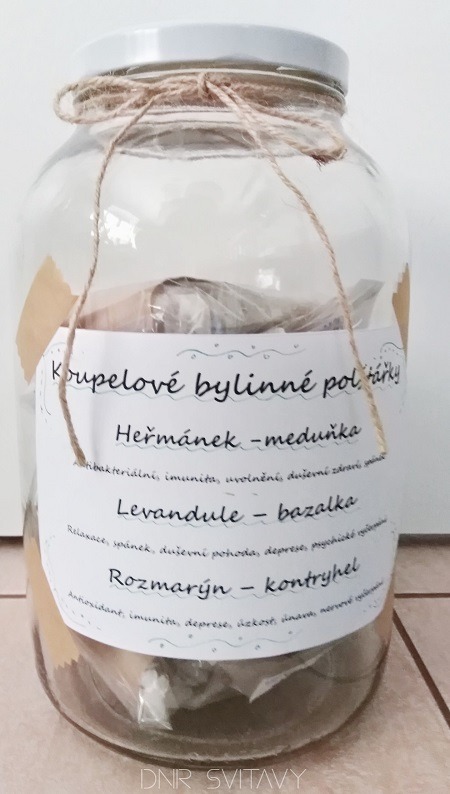 Koupelové bylinné polštářky
Heřmánek -meduňka
Antibakteriální, imunita, uvolnění, duševní zdraví, spánek
Levandule – bazalka
Relaxace, spánek, duševní pohoda, deprese, psychické vyčerpání
Rozmarýn – kontryhel
Antioxidant, imunita, deprese, úzkost, únava, nervové vyčerpání
DNR SVITAVY